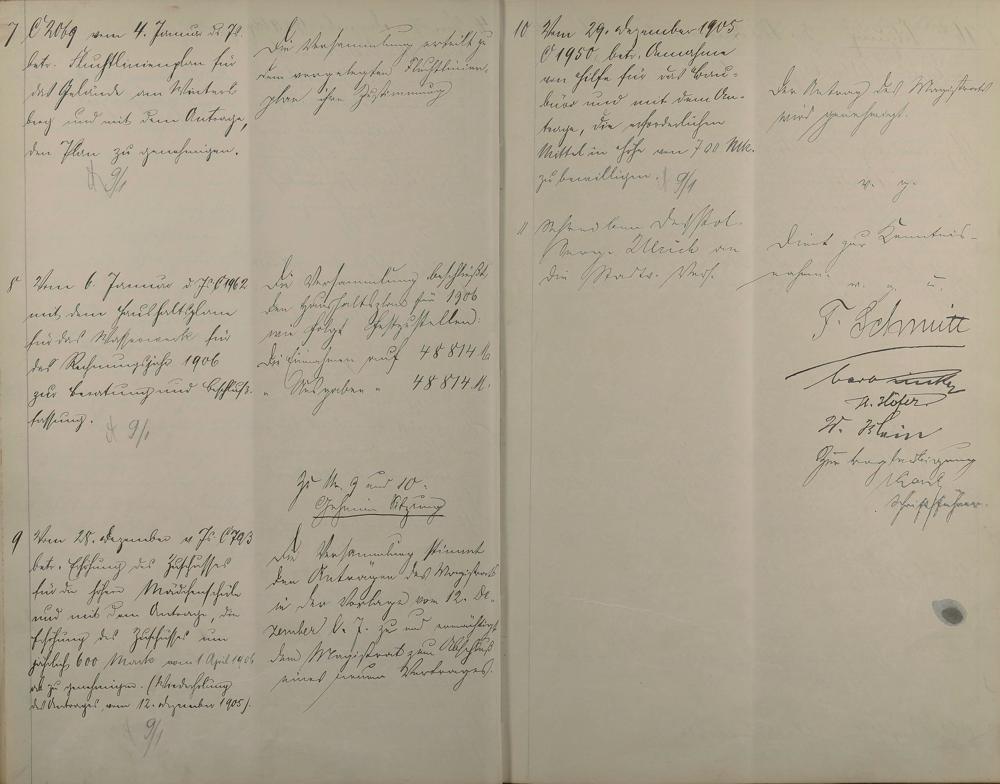 7 C 2069 vom 4. Januar d. Js.
betr. Fluchtlinienplan für
das Gelände am Winters
berg und mit dem Antrage,
den Plan zu genehmigen.
9/1
Die Versammlung erteilt zu
dem vorgelegten Fluchtlinien
plan ihre Zustimmung
8 Vom 6. Januar d. Js. C 1962
mit dem Haushaltsplane
für das Wasserwerk für
das Rechnungsjahr 1906
zur Beratung und Beschluß-
fassung.
9/1
Die Versammlung beschließt,
den Haushaltsplan für 1906
wie folgt festzustellen:
Die Einnahmen auf 48 814 M
" Ausgaben " 48 814 M.
Zu Nr. 9 und 10.
Geheime Sitzung
9 Vom 28. Dezember v. Js. C 793
betr. Erhöhung des Zuschusses
für die höhere Mädchenschule
und mit dem Antrage, die
Erhöhung des Zuschusses um
jährlich 600 Mark vom 1. April 1906
ab zu genehmigen. (Wiederholung
des Antrages vom 12. Dezember 1905).
9/1
Die Versammlung stimmt
den Anträgen des Magistrats
in der Vorlage vom 12. De-
zember v. J. zu und ermächtigt
den Magistrat zum Abschluß
eines neuen Vertrages.
10 Vom 29. Dezember 1905
C 1950, betr. Annahme
von Hilfe für das Bau-
büro und mit dem An-
trage, die erforderlichen
Mittel in Höhe von 700 Mk.
zu bewilligen.
9/1
Der Antrag des Magistrats
wird genehmigt.
v. g.
11 Schreiben des
Ulrich an
die Stadtv. Vers.
Dient zur Kenntnis-
nahme.
v. g. u.
F. Schmitt
H. Höfer
W. Klein
Zur Beglaubigung
Karl
Schriftführer.